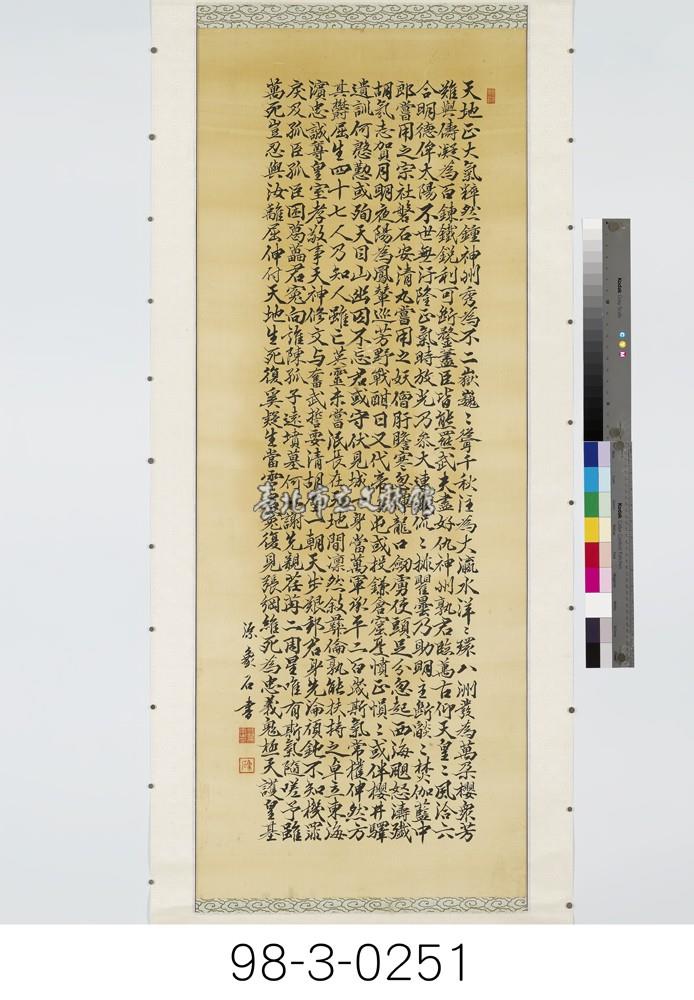 天地正大氣粹然鍾神州秀為不二嶽巍〻聳千秋注為大瀛水洋〻環八洲發為萬朶櫻衆芳
難與儔凝為百鍊鐵銳利可斷鍪藎臣皆熊羆武夫盡好仇神州孰君臨萬古仰天皇〻風洽六
合明德侔太陽不世無汙隆正氣時放光乃參大連議侃〻排瞿曇乃助明主斷燄〻焚伽藍中
郎嘗用之宗社磐石安清丸嘗用之妖僧肝膽寒忽揮龍口劒虜使頭足分忽起西海颶怒濤殲
胡氛志賀月明夜陽為鳳輦巡芳野戰酣日又代帝子屯或投鎌倉窟憂憤正愪〻或伴櫻井驛
遺訓何慇懃或殉天目山幽囚不忘君或守伏見城一身當萬軍承平二百歲斯氣常獲伸然方
其欝屈生四十七人乃知人雖亡英靈未嘗泯長在天地間凛然敍彜倫孰能扶持之卓立東海
濱忠誠尊皇室孝敬事天神修文与奮武誓要清胡塵一朝天步艱邦君身先淪頑鈍不知機罪
戾及孤臣孤臣困葛藟君冤向誰陳孤子遠墳墓何以謝先親荏苒二周星唯有斯氣隨嗟予雖
萬死豈忍與汝離屈伸付天地生死復奚疑生當雪君冤復見張綱維死為忠義鬼極天護皇基
源象石書
臺北市立文獻館
98-3-0251